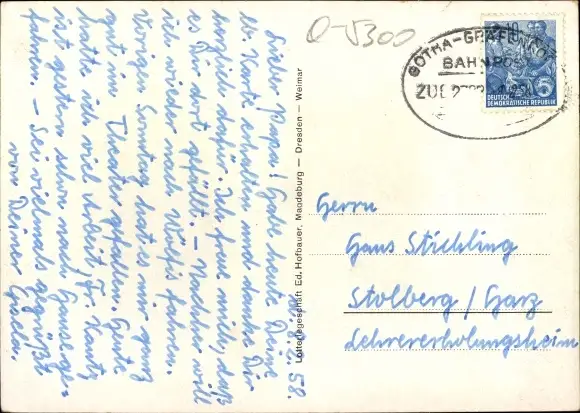 10.8.58.
Lieber Papa! Habe heute Deine
lb. Karte erhalten und danke Dir
herzlichst dafür. Ich freue mich, daß
es Dir dort gefällt. – Nachher will
ich wieder nach Wölfis fahren.
Vorigen Sonntag hat es mir ganz
gut im Theater gefallen. Heute
hatte ich viel Arbeit, Fr. Kautz
ist gestern schon nach Hause ge-
fahren. – Sei vielmals gegrüßt
von Deiner Gisela.
Lotteriegeschäft Ed. Hofbauer, Magdeburg — Dresden — Weimar
0-5300
GOTHA-GRÄFENRODA
BAHNPOST
ZUG
10
5
DEUTSCHE
DEMOKRATISCHE REPUBLIK
Herrn
Hans Stichling
Stolberg / Harz
Lehrererholungsheim